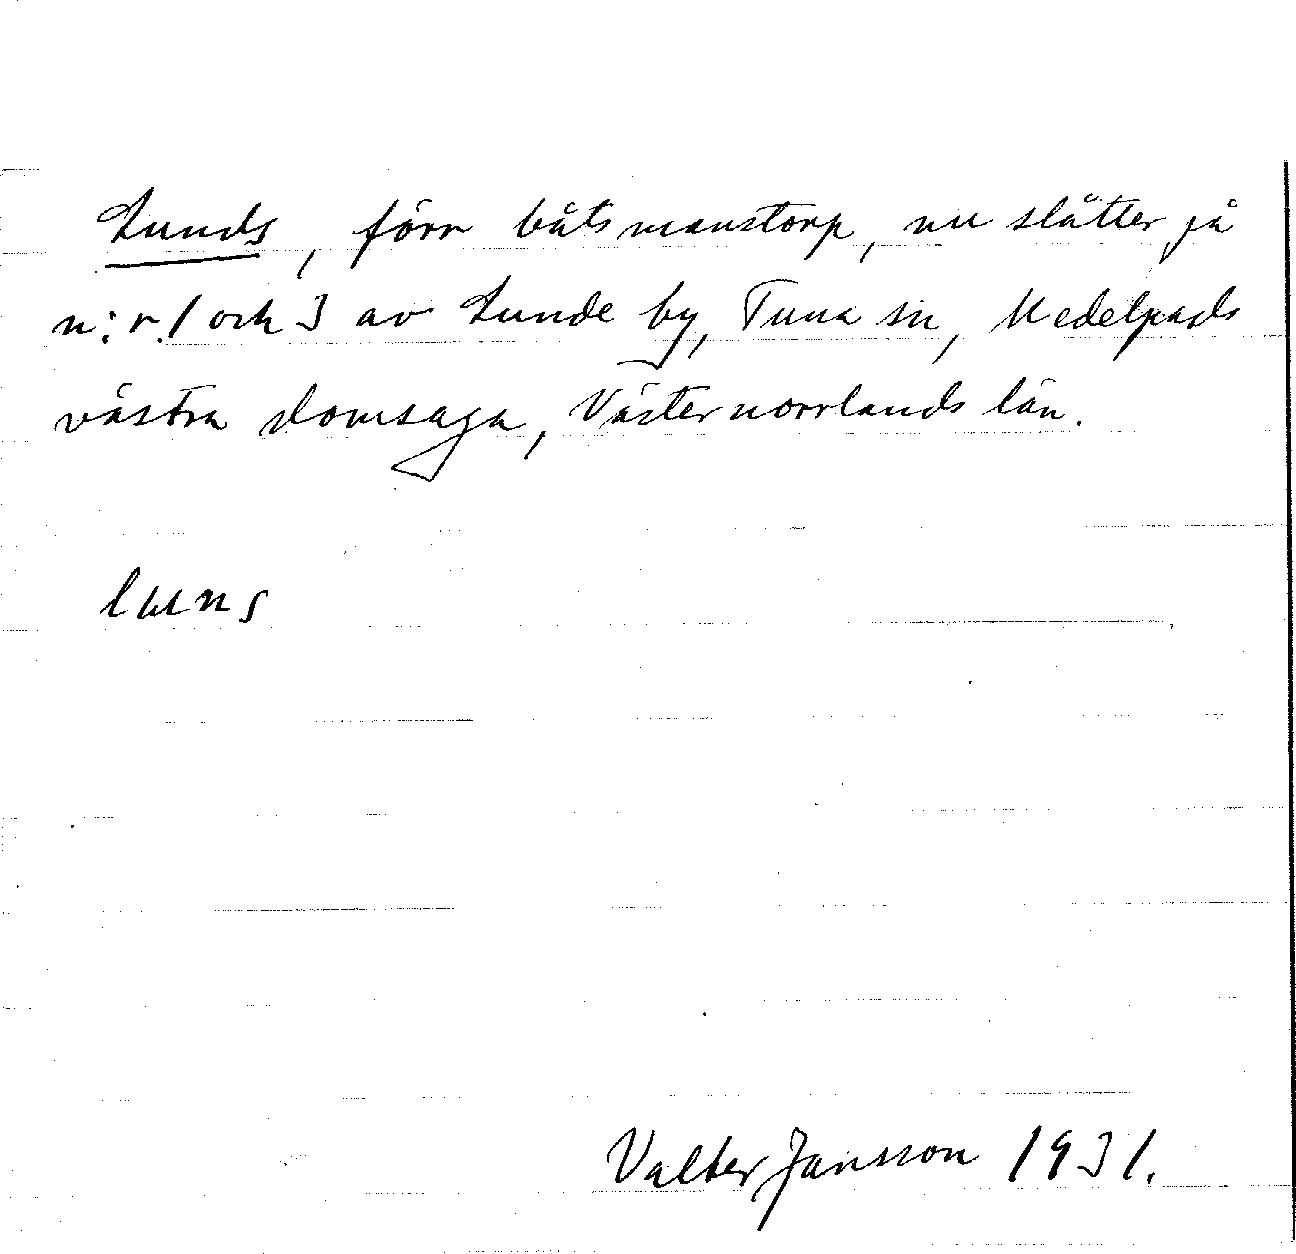 Lunds, förr båtsmanstorp, nu slåtter på
n:r 1 och 3 av Lunde by, Tuna sn, Medelpads
västra domsaga, Västernorrlands län.
luns
Valter Jansson 1931.